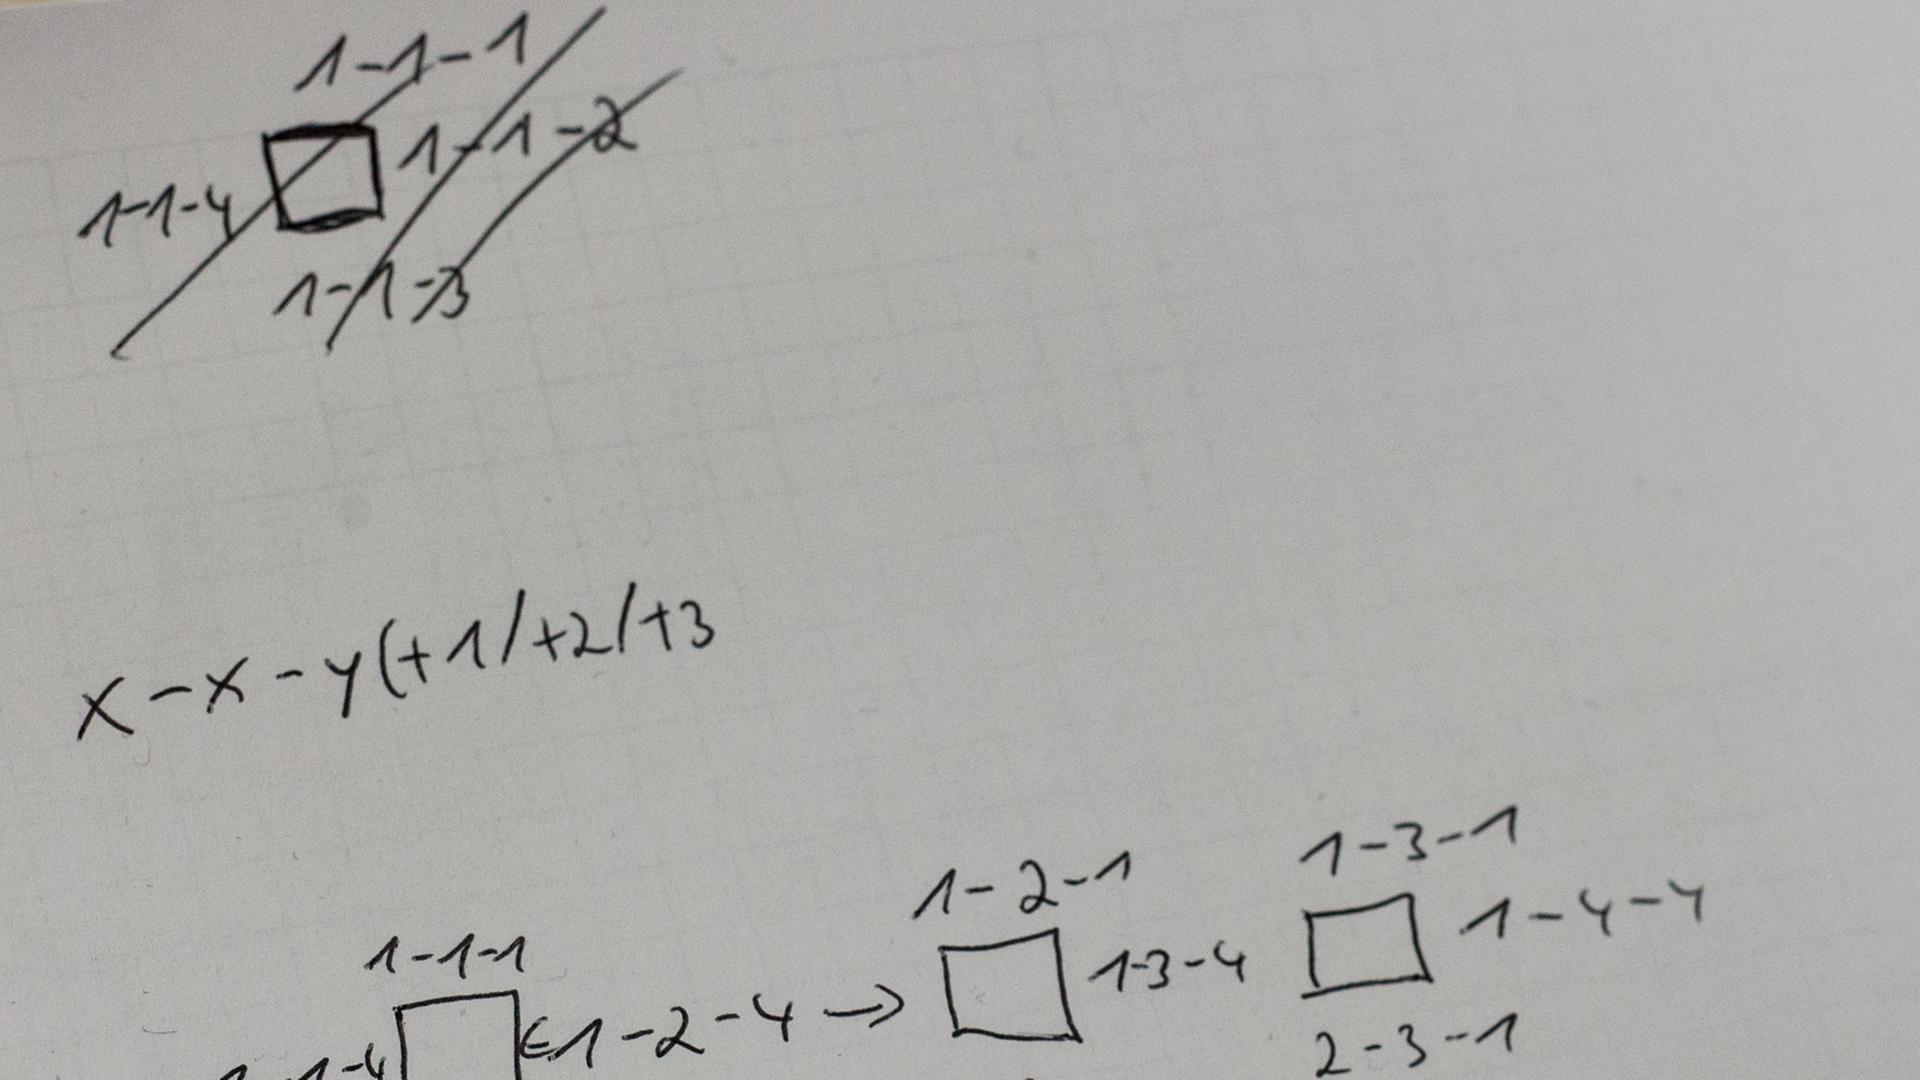 1-1-1
1-1-2
1-1-4
1-1-3
x-x-y(+1/+2/+3
1-3-1
1-2-1
1-4-4
1-3-4
1-1-1
1-2-4 →
2-3-1